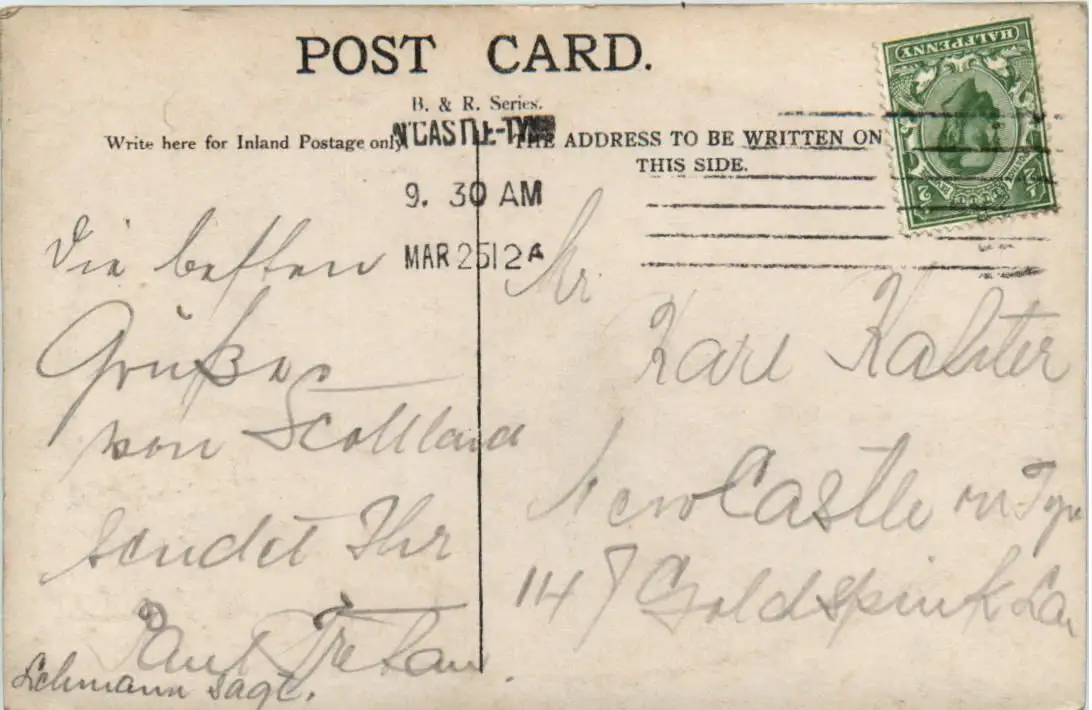 POST CARD.
B. & R. Series.
Write here for Inland Postage only
THE ADDRESS TO BE WRITTEN ON
THIS SIDE.
N'CASTLE-TYNE
9. 30 AM
MAR 25 12 A
HALFPENNY
Die besten
Grüße
von Scottland
sendet Ihr
Paul
Lehmann sagt.
Mr.
Karl
New Castle on Tyne
147 Goldspink La